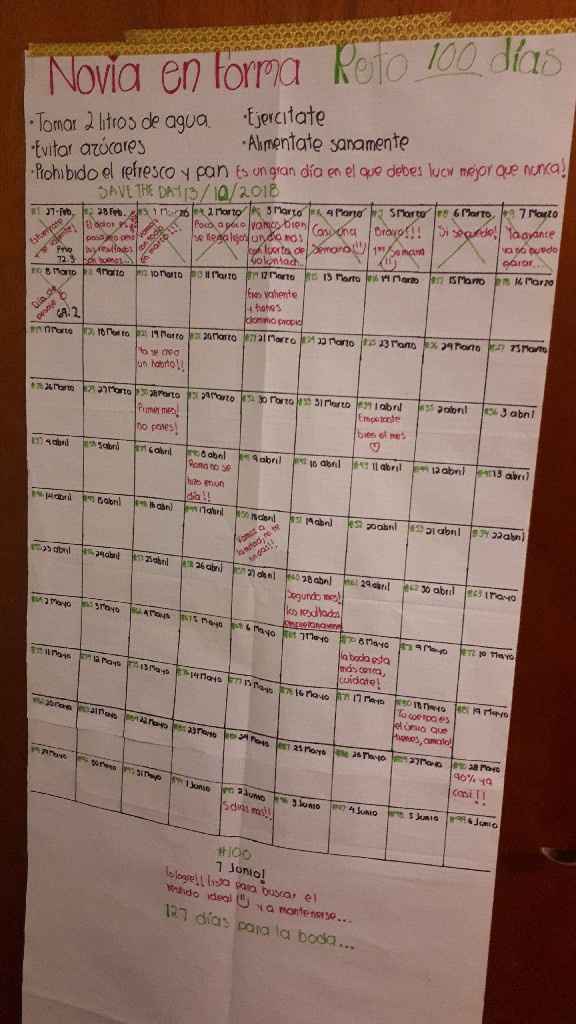 Novia en forma Reto 100 días
·Tomar 2 litros de agua. ·Ejercitate
·Evitar azúcares ·Alimentate sanamente
·Prohibido el refresco y pan Es un gran día en el que debes lucir mejor que nunca!
SAVE THE DAY 13/10/2018
#1 27-Feb. #2 28 Feb. #3 1 Marzo #4 2 Marzo #5 3 Marzo #6 4 Marzo #7 5 Marzo #8 6 Marzo #9 7 Marzo
El dolor es pasajero pero tus resultados
Poco a poco se llega lejos
Vamos bien un día más con fuerza de voluntad...
Casi una semana!!
Bravo!!! 1ra semana
Si se puede!
Ya avance ya no puedo parar...
Peso 72.3
#10 8 Marzo 9 Marzo #12 10 Marzo #13 11 Marzo #14 12 Marzo #15 13 Marzo #16 14 Marzo #17 15 Marzo #18 16 Marzo
Día de pesaje
Eres valiente y tienes dominio propio
#19 17 Marzo #20 18 Marzo #21 19 Marzo #22 20 Marzo 21 Marzo #24 22 Marzo #25 23 Marzo #26 24 Marzo #27 25 Marzo
Ya se creo un habito!!
#28 26 Marzo #29 27 Marzo #30 28 Marzo #31 29 Marzo #32 30 Marzo #33 31 Marzo #34 1 abril #35 2 abril #36 3 abril
Primer mes! no pares!
Empezaste bien el mes
#37 4 abril #38 5 abril #39 6 abril #40 8 abril #41 9 abril #42 10 abril #43 11 abril #44 12 abril #45 13 abril
Roma no se hizo en un día!!
#46 14 abril #47 15 abril #48 16 abril #49 17 abril #50 18 abril #51 19 abril #52 20 abril #53 21 abril #54 22 abril
Vamos a la mitad, no te
#55 23 abril #56 24 abril #57 25 abril #58 26 abril #59 27 abril #60 28 abril #61 29 abril #62 30 abril #63 1 Mayo
Segundo mes! los resultados
#64 2 Mayo #65 3 Mayo #66 4 Mayo #67 5 Mayo #68 6 Mayo #69 7 Mayo #70 8 Mayo #71 9 Mayo #72 10 Mayo
la boda esta más cerca, cuídate!
#73 11 Mayo #74 12 Mayo #75 13 Mayo #76 14 Mayo #77 15 Mayo #78 16 Mayo #79 17 Mayo #80 18 Mayo #81 19 Mayo
Tu cuerpo es el único que tienes, amalo!
#82 20 Mayo #83 21 Mayo #84 22 Mayo #85 23 Mayo #86 24 Mayo #87 25 Mayo #88 26 Mayo #89 27 Mayo #90 28 Mayo
90% ya casi!!
#91 29 Mayo #92 30 Mayo #93 31 Mayo #94 1 Junio #95 2 Junio #96 3 Junio #97 4 Junio #98 5 Junio #99 6 Junio
5 días mas!!
#100
7 Junio!
lo logre!! lista para buscar el
vestido ideal y a mantenerse...
127 días para la boda...